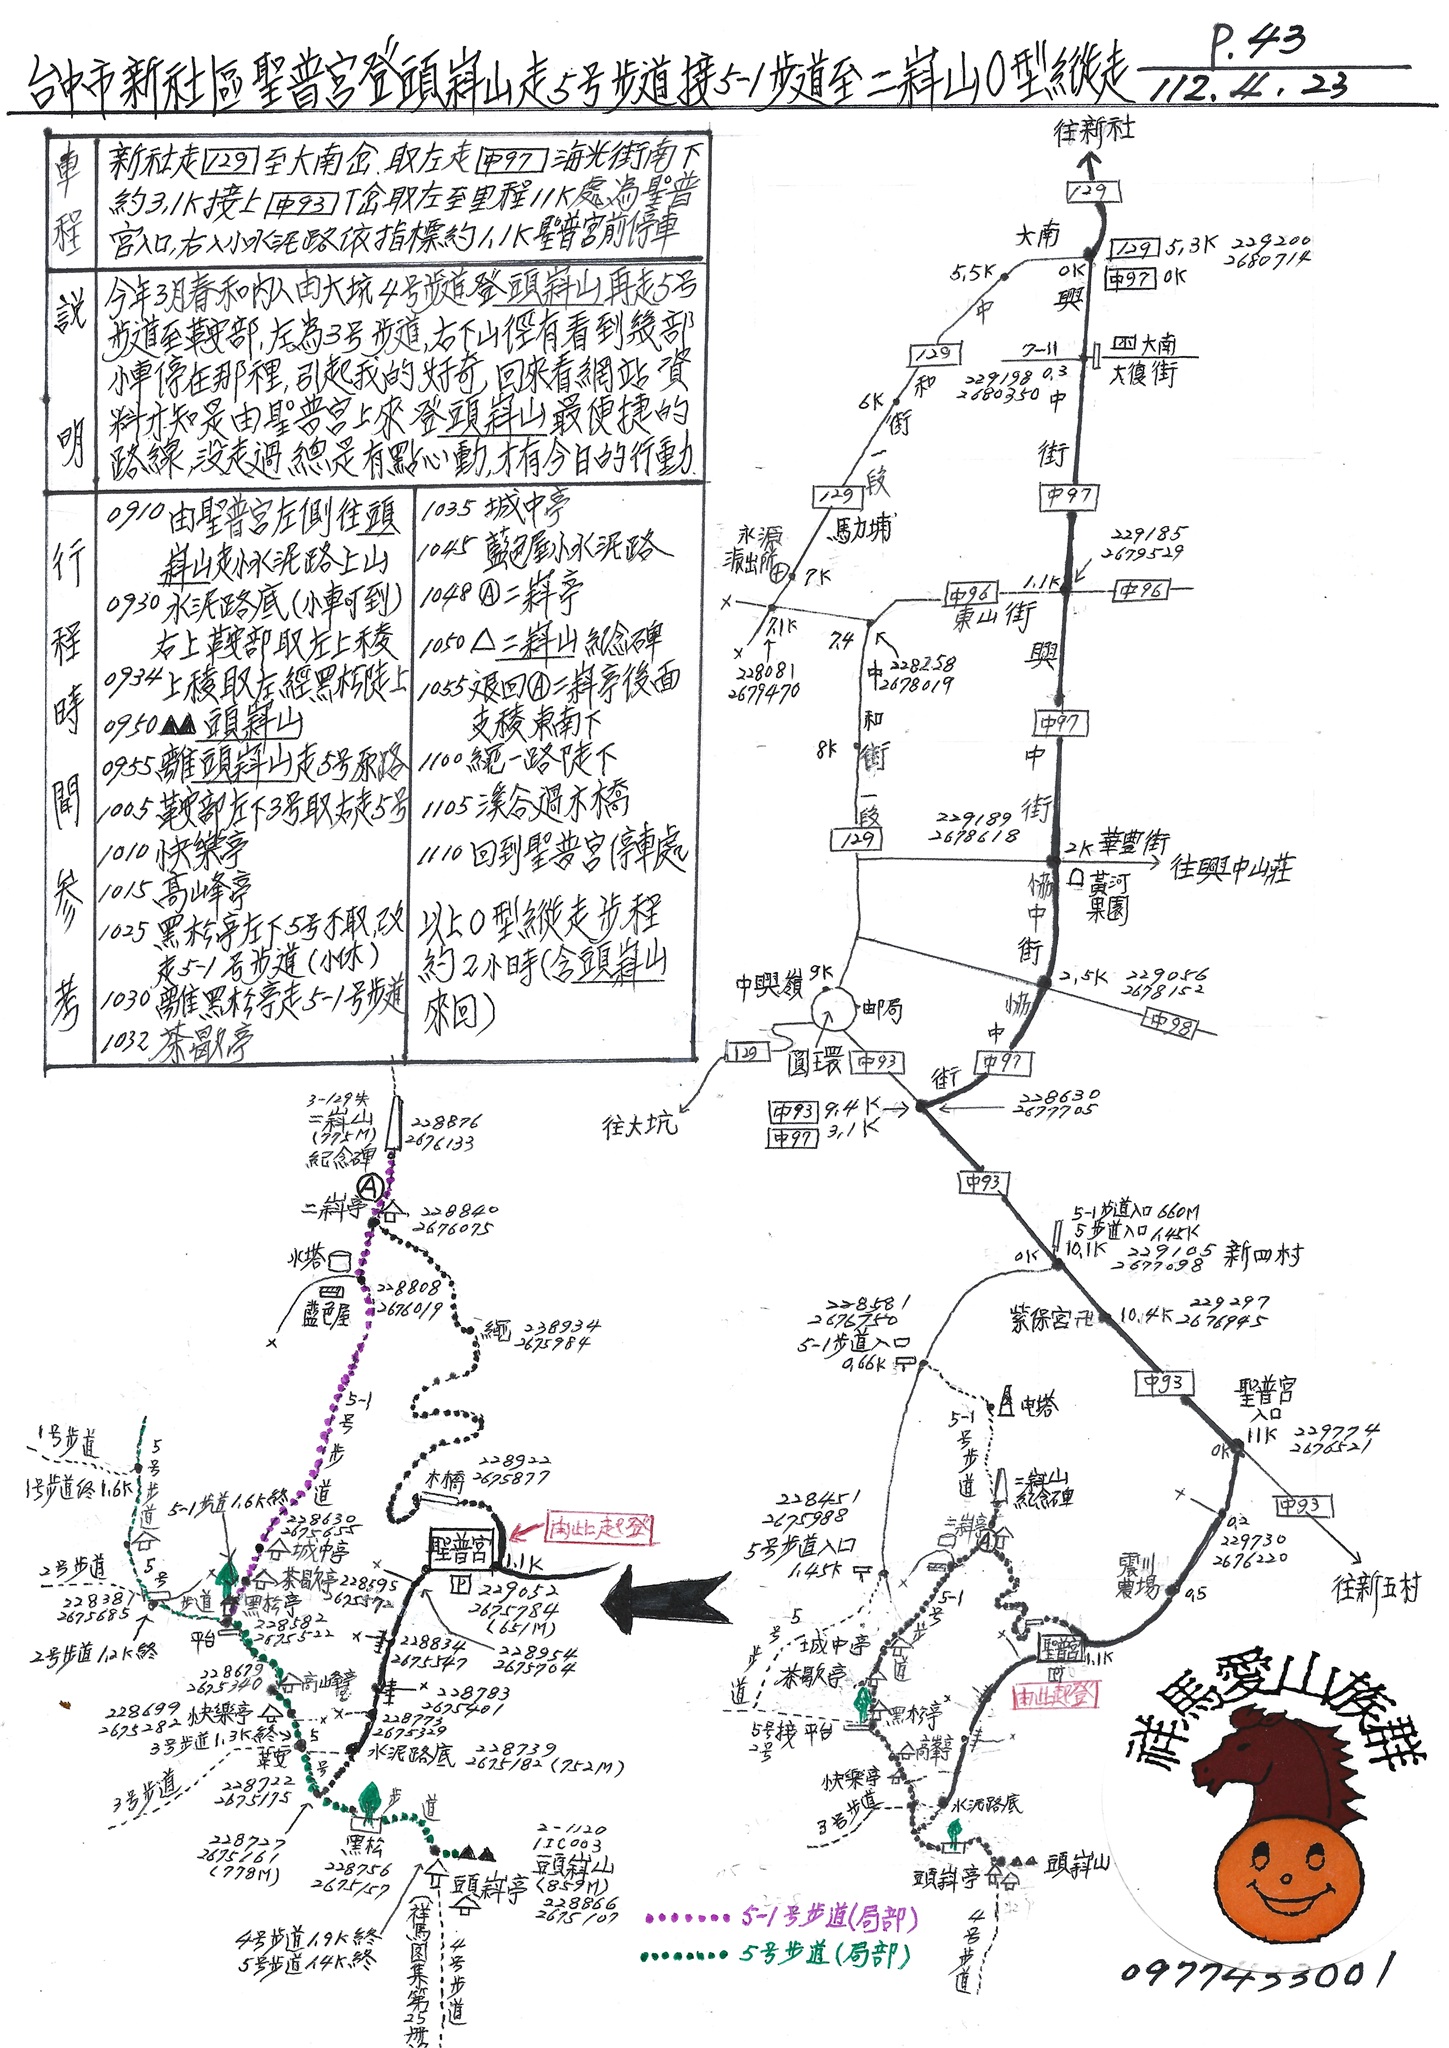 P.43
台中市新社區聖普宮登頭嵙山走5号步道接5-1步道至二嵙山O型縱走
112.4.23
車程
新社走129至大南岔.取左走中97海光街南下
約3.1K接上中93丁岔取左至里程11K處為聖普
宮入口,右入小水泥路依指標約1.1K聖普宮前停車
說明
今年3月春和內人由大坑4号步道登頭嵙山再走5号
步道至鞍部,左為3号步道,右下山徑有看到幾部
小車停在那裡,引起我的好奇,回來看網站資
料才知是由聖普宮上來登頭嵙山最便捷的
路線,没走過總是有點心動,才有今日的行動
行程時間參考
0910由聖普宮左側往頭
嵙山走小水泥路上山
0930水泥路底(小車可到)
右上鞍部取左上稜
0934上稜取左經黑松陡上
0950▲▲頭嵙山
0955離頭嵙山走5号原路
1005鞍部左下3号取右走5号
1010快樂亭
1015高山峰亭
1025黑松亭左下5号不取,改
走5-1号步道(小休)
1030離黑松亭走5-1号步道
1032茶歇亭
1035城中亭
1045藍色屋小水泥路
1048Ⓐ二嵙亭
1050△二嵙山紀念碑
1055退回Ⓐ二嵙亭後面
支稜東南下
1100繩一路陡下
1105溪谷過木橋
1110回到聖普宮停車處
以上O型縱走步程
約2小時(含頭嵙山
來回)
往新社
129
大南
129 5.3K 229200
2680714
中97 0K
0K
5.5K
中興中街
7-11
大南
大復街
229198 0.3
2680350
129
中和街一段
6K
129
馬力埔
永源
派出所
7K
7.1K
228081
2679470
中97
229185
2679529
1.1K
中96
東山街
中96
7.4
228258
2678019
中和街一段
8K
129
興中街
中97
229189
2678618
2K 華豊街
往興中山莊
黃河
果園
協中街
2.5K 229056
2678152
中98
9K
中興嶺
郵局
圓環
129
往大坑
中93
協中街
中97
中93 9.4K
中97 3.1K
228630
2677705
中93
5-1步道入口660M
5步道入口1.45K
0K
10.1K 229105
2677098
新四村
紫保宮卍 10.4K 229297
2676945
中93
聖普宮
入口
11K 229774
2676521
0K
中93
往新五村
0.2
229730
2676220
農場 0.5
228581
2676750
5-1步道入口
0.66K
电塔
5-1号步道
二嵙山
紀念碑
二嵙亭
228451
2675988
5号步道入口
1.45K
5-1号道
5号步道
城中亭
茶歇亭
黑松亭
5号接
2号
平台
高峯亭
快樂亭
3号步道
水泥路底
頭嵙亭
頭嵙山
4号步道
聖普宮
P
1.1K
由此起登
3-129失
二嵙山
(775M)
紀念碑
228876
2676133
Ⓐ
二嵙亭
228840
2676075
水塔
藍色屋
228808
2676019
繩 228934
2675984
5-1号步道
木橋
228922
2675877
聖普宮
P
1.1K
由此起登
229052
2675784
(651M)
228954
2675704
1号步道
1号步道終1.6K
5号步道
5-1步道1.6K終
228630
2675655
城中亭
茶歇亭
黑松亭
228582
2675522
228595
2675572
2号步道
228381
2675685
2号步道1.2K終
5号步道
平台
228834
2675547
228679
2675340
高山峰亭
228783
2675401
228699
2675282
快樂亭
3号步道1.3K終
228773
2675329
鞍
3号步道
水泥路底 228739
2675182(752M)
228722
2675175
5号步道
228727
2675161
(778M)
黑松
228756
2675157
2-1120
1IC003
頭嵙山
(859M)
228866
2675107
頭嵙亭
4号步道1.9K終
5号步道1.4K終
(祥馬図集第25
4号步道
5-1号步道(局部)
5号步道(局部)
祥馬愛山族群
0977433001